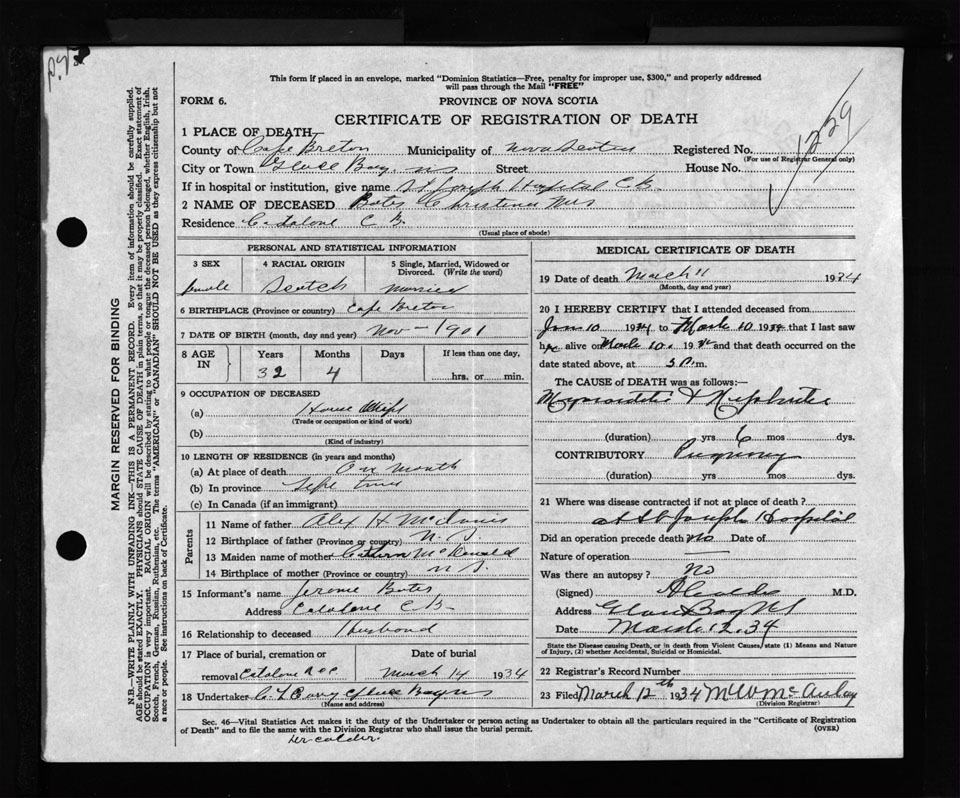 This form if placed in an envelope, marked "Dominion Statistics—Free, penalty for improper use, $300," and properly addressed
will pass through the Mail "FREE"
FORM 6.
PROVINCE OF NOVA SCOTIA
CERTIFICATE OF REGISTRATION OF DEATH
1 PLACE OF DEATH
County of Cape Breton Municipality of Nova Scotia Registered No. 1229
(For use of Registrar General only)
City or Town Glace Bay, NS Street House No.
If in hospital or institution, give name St Joseph Hospital C.B.
2 NAME OF DECEASED Bates Christina Mrs
Residence Catalone C B.
(Usual place of abode)
PERSONAL AND STATISTICAL INFORMATION
3 SEX 4 RACIAL ORIGIN 5 Single, Married, Widowed or
Divorced. (Write the word)
female Scotch Married
6 BIRTHPLACE (Province or country) Cape Breton
7 DATE OF BIRTH (month, day and year) Nov — 1901
8 AGE IN Years Months Days If less than one day,
32 4 hrs. or min.
9 OCCUPATION OF DECEASED
(a) House Wife
(Trade or occupation or kind of work)
(b)
(Kind of industry)
10 LENGTH OF RESIDENCE (in years and months)
(a) At place of death One month
(b) In province Life time
(c) In Canada (if an immigrant)
Parents
11 Name of father Alex H
12 Birthplace of father (Province or country) N. S.
13 Maiden name of mother McDonald
14 Birthplace of mother (Province or country) N S.
15 Informant's name Jerome Bates
Address Catalone C B-
16 Relationship to deceased Husband
17 Place of burial, cremation or Date of burial
removal Catalone March 14 1934
18 Undertaker Glace Bay NS
(Name and address)
MEDICAL CERTIFICATE OF DEATH
19 Date of death March 11 1934
(Month, day and year)
20 I HEREBY CERTIFY that I attended deceased from
Jan 10 1934 to March 10 1934 that I last saw
her alive on March 10 1934 and that death occurred on the
date stated above, at 5 P.m.
The CAUSE OF DEATH was as follows:—
Myocarditis & Nephritis
(duration) yrs 6 mos dys.
CONTRIBUTORY Pregnancy
(duration) yrs mos dys.
21 Where was disease contracted if not at place of death?
at St Joseph Hospital
Did an operation precede death no Date of
Nature of operation
Was there an autopsy? No
(Signed) M.D.
Address Glace Bay NS
Date March 12. 34
State the Disease causing Death, or in death from Violent Causes, state (1) Means and Nature
of Injury, (2) whether Accidental, Suicidal or Homicidal.
22 Registrar's Record Number
23 Filed March 12th 1934 McAulay
(Division Registrar)
Sec. 46—Vital Statistics Act makes it the duty of the Undertaker or person acting as Undertaker to obtain all the particulars required in the "Certificate of Registration
of Death" and to file the same with the Division Registrar who shall issue the burial permit.
(OVER)
MARGIN RESERVED FOR BINDING
N.B.—WRITE PLAINLY WITH UNFADING INK—THIS IS A PERMANENT RECORD. Every item of information should be carefully supplied.
AGE should be stated EXACTLY. PHYSICIANS should STATE CAUSE OF DEATH in plain terms, so that it may be properly classified. Exact statement of
OCCUPATION is very important. RACIAL ORIGIN will be described by stating to what people or tongue the deceased person belonged, whether English, Irish,
Scotch, French, German, Russian, Ruthenian, etc. The terms "AMERICAN" or "CANADIAN" SHOULD NOT BE USED as they express citizenship but not
a race or people. See instructions on back of Certificate.